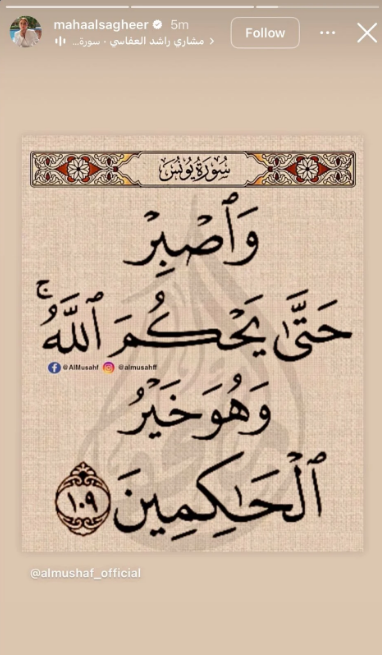 mahaalsagheer 5m
Follow
مشاري راشد العفاسي · سورة...
سُورَةُ يُونُسَ
وَٱصْبِرْ
حَتَّىٰ يَحْكُمَ ٱللَّهُۚ
@AlMusahf @almushaff
وَهُوَ خَيْرُ
ٱلْحَـٰكِمِينَ ١٠٩
@almushaf_official